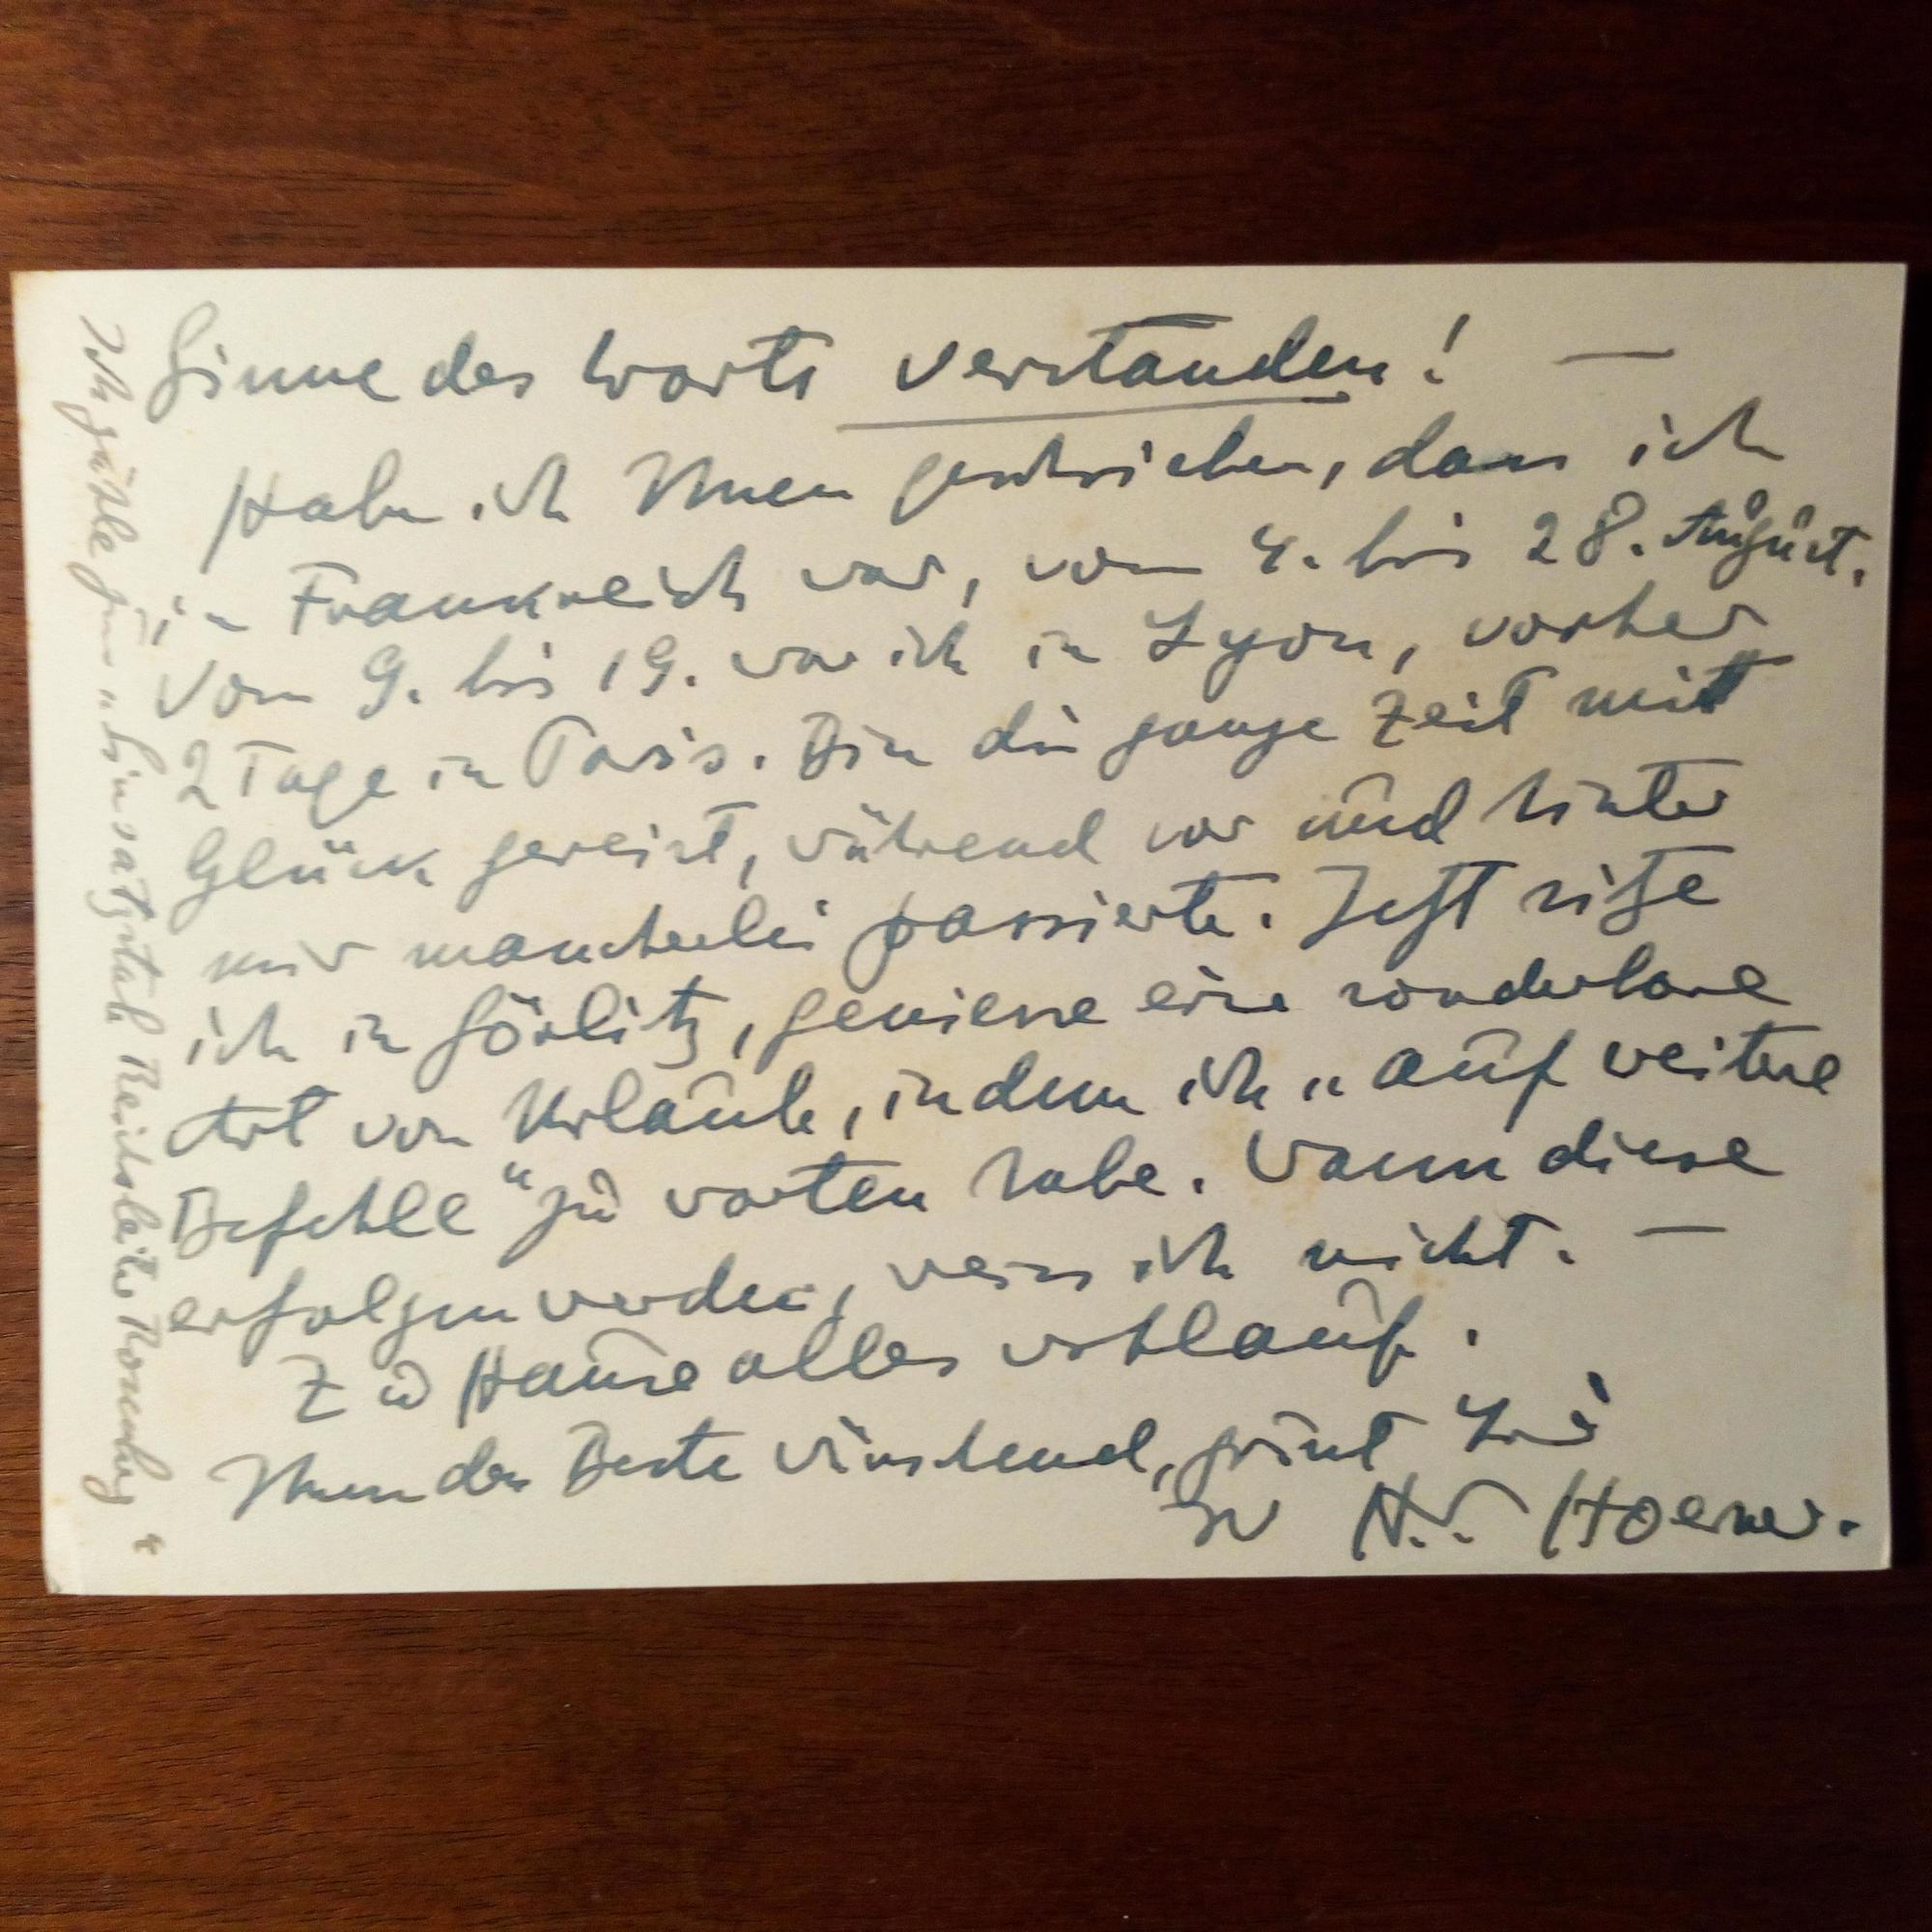 Sinne des Worts verstanden! —
Habe ich Ihnen geschrieben, dass ich
in Frankreich war, vom 4. bis 28. August.
Vom 9. bis 19. war ich in Lyon, vorher
2 Tage in Paris. Bin die ganze Zeit mit
Glück gereist, während vor und hinter
mir mancherlei passierte. Jetzt sitze
ich in Görlitz, geniesse eine sonderbare
Art von Urlaub, indem ich „auf weitere
Befehle“ zu warten habe. Wann diese
erfolgen werden, weiss ich nicht. —
Zu Hause alles wohlauf.
Ihnen das Beste wünschend, grüsst Sie
Ihr H. v. Hoerner.
Ich zähle zum „Einsatzstab Reichsleiter Rosenberg“